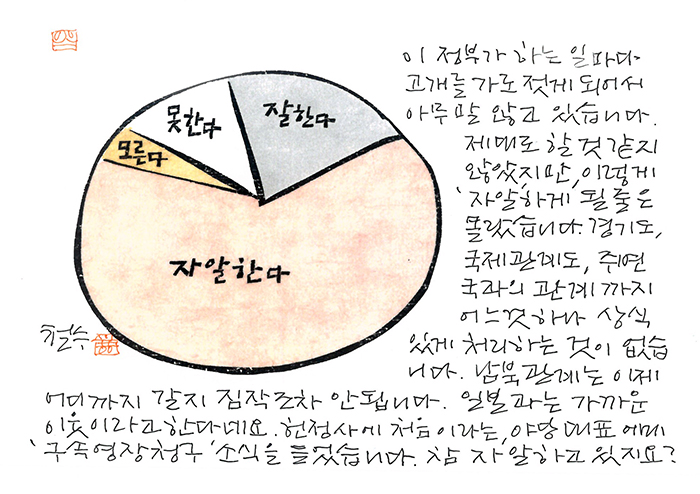 이 정부가 하는 일마다
고개를 가로 젓게 되어서
아주 말 않고 있습니다.
제대로 할 것 같지
않았지만, 이렇게
'자알하게 될 줄은
몰랐습니다. 경기도,
국제관계도, 주변
국과의 관계까지
어느것 하나 상식
있게 처리하는 것이 없습
니다. 남북관계는 이제
어디까지 갈지 짐작조차 안됩니다. 일본과는 가까운
이웃이라고 한다네요. 헌정사에 처음이라는, 야당대표에게
'구속영장청구' 소식을 들었습니다. 참 자알하고 있지요?
못한다
잘한다
모른다
자알한다
철수